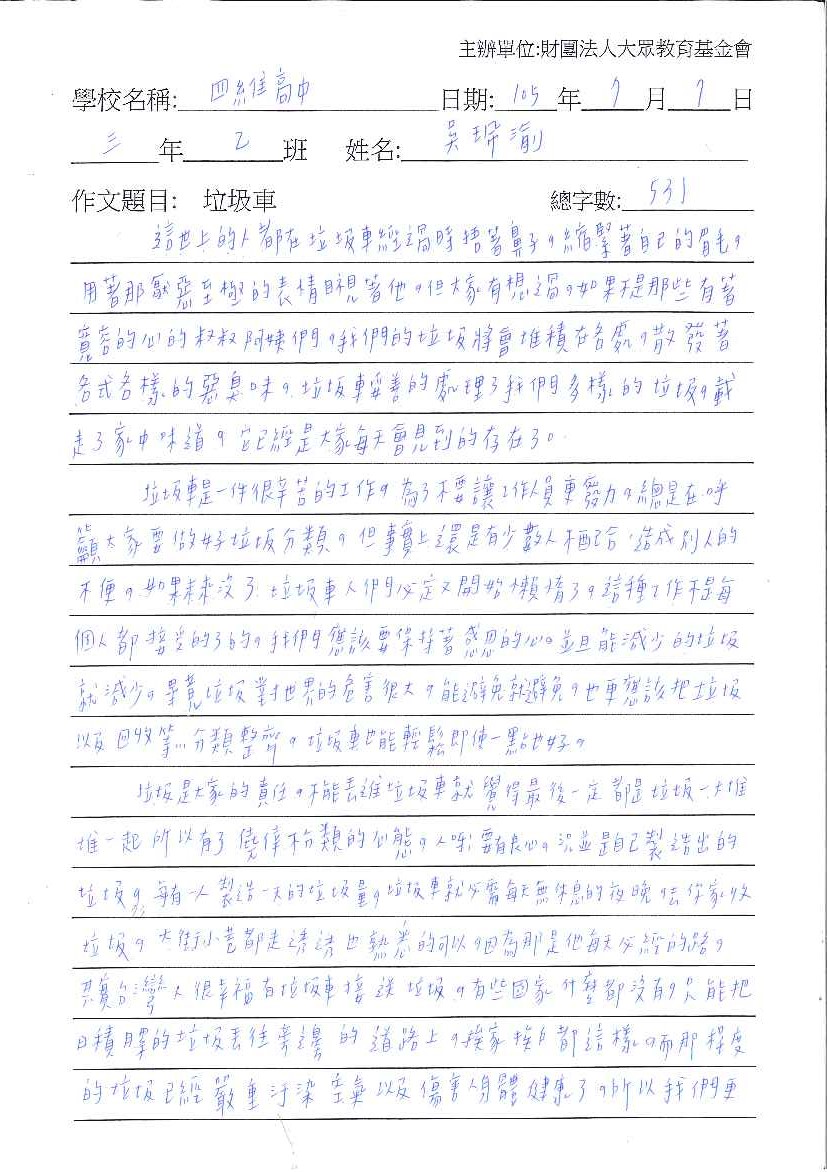 主辦單位:財團法人大眾教育基金會
學校名稱: 四維高中 日期: 105 年 7 月 7 日
三 年 乙 班 姓名: 吳
作文題目: 垃圾車 總字數: 531
這世上的人都在垃圾車經過時捂著鼻子,縮緊著自己的眉毛,
用著那厭惡至極的表情目視著他,但大家有想過,如果不是那些有著
寬容的心的叔叔阿姨們,我們的垃圾將會堆積在各處,散發著
各式各樣的惡臭味,垃圾車妥善的處理了我們多樣的垃圾,載
走了家中味道,它已經是大家每天會見到的存在了。
垃圾車是一件很辛苦的工作,為了不要讓工作人員更發力,總是在呼
籲大家要做好垃圾分類,但事實上還是有少數人不配合,造成別人的
不便,如果未來沒了垃圾車人們必定又開始懶惰了,這種工作不是每
個人都接受的了的,我們應該要保持著感恩的心。並且能減少的垃圾
就減少,畢竟垃圾對世界的危害很大,能避免就避免,也更應該把垃圾
以及回收等…分類整齊,垃圾車也能輕鬆即使一點也好。
垃圾是大家的責任,不能丟進垃圾車就覺得最後一定都是垃圾一大堆
堆一起所以有了僥倖不分類的心態,人啊!要有良心,況並是自己製造出的
垃圾,每有一人製造一天的垃圾量,垃圾車就必需每天無休息的夜晚,去你家收
垃圾,大街小巷都走透透也熟悉的可以,因為那是他每天必經的路,
其實台灣人很幸福有垃圾車接送垃圾,有些國家什麼都沒有,只能把
日積月累的垃圾丟往旁邊的道路上,挨家挨戶都這樣,而那程度
的垃圾已經嚴重汙染空氣以及傷害人身體健康了,所以我們更